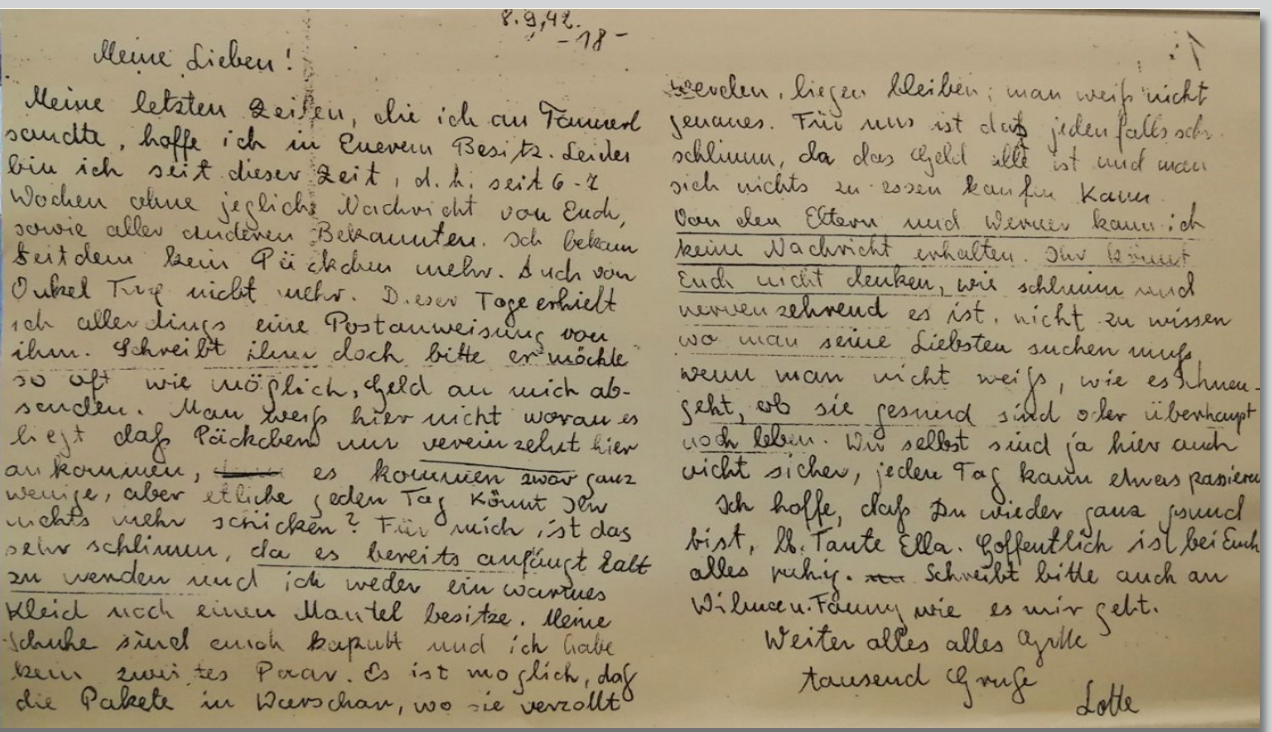 8.9.42.
-18-
Meine Lieben!
Meine letzten Zeilen, die ich an Tannerl
sandte, hoffe ich in Euerem Besitz. Leider
bin ich seit dieser Zeit, d. h. seit 6-7
Wochen ohne jegliche Nachricht von Euch,
sowie aller anderen Bekannten. Ich bekam
seitdem kein Päckchen mehr. Auch von
Onkel nicht mehr. Dieser Tage erhielt
ich allerdings eine Postanweisung von
ihm. Schreibt ihm doch bitte er möchte
so oft wie möglich, Geld an mich ab-
senden. Man weiß hier nicht woran es
liegt daß Päckchen nur vereinzelnt hier
ankommen, es kommen zwar ganz
wenige, aber etliche jeden Tag Könnt Ihr
nichts mehr schicken? Für mich ist das
sehr schlimm, da es bereits anfängt kalt
zu werden und ich weder ein warmes
Kleid noch einen Mantel besitze. Meine
Schuhe sind auch kaputt und ich habe
kein zweites Paar. Es ist moglich, daß
die Pakete in Warschau, wo sie verzollt
1.
werden, liegen bleiben; man weiß nicht
genaues. Für uns ist daß jedenfalls sehr
schlimm, da das Geld alle ist und man
sich nichts zu essen kaufen kann.
Von den Eltern und Werner kann ich
keine Nachricht erhalten. Ihr könnt
Euch nicht denken, wie schlimm und
nervenzehrend es ist, nicht zu wissen
wo man seine Liebsten suchen muß,
wenn man nicht weiß, wie es Ihnen-
geht, ob sie gesund sind oder überhaupt
noch leben. Wir selbst sind ja hier auch
nicht sicher, jeden Tag kann etwas passieren
Ich hoffe, daß Du wieder ganz gsund
bist, lb. Tante Ella. Hoffentlich ist bei Euch
alles ruhig. Schreibt bitte auch an
Wilma u. Fanny wie es mir geht.
Weiter alles alles Gute
tausend Gruße
Lotte